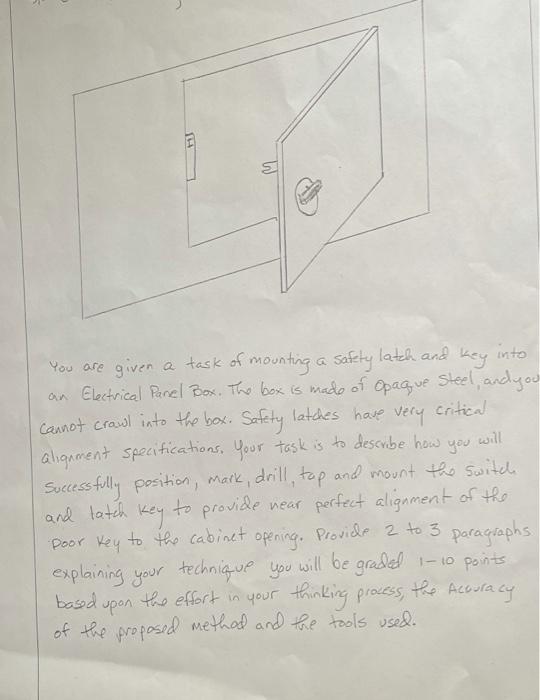 You are given a task of mounting a safety latch and key into
an Electrical Panel Box. The box is made of Opaque Steel, and you
cannot crawl into the box. Safety latches have very critical
alignment specifications. Your task is to describe how you will
Successfully position, mark, drill, tap and mount the switch
and latch key to provide near perfect alignment of the
Door key to the cabinet opening. Provide 2 to 3 paragraphs
explaining your technique you will be graded 1-10 points
based upon the effort in your thinking process, the Accuracy
of the proposed method and the tools used.